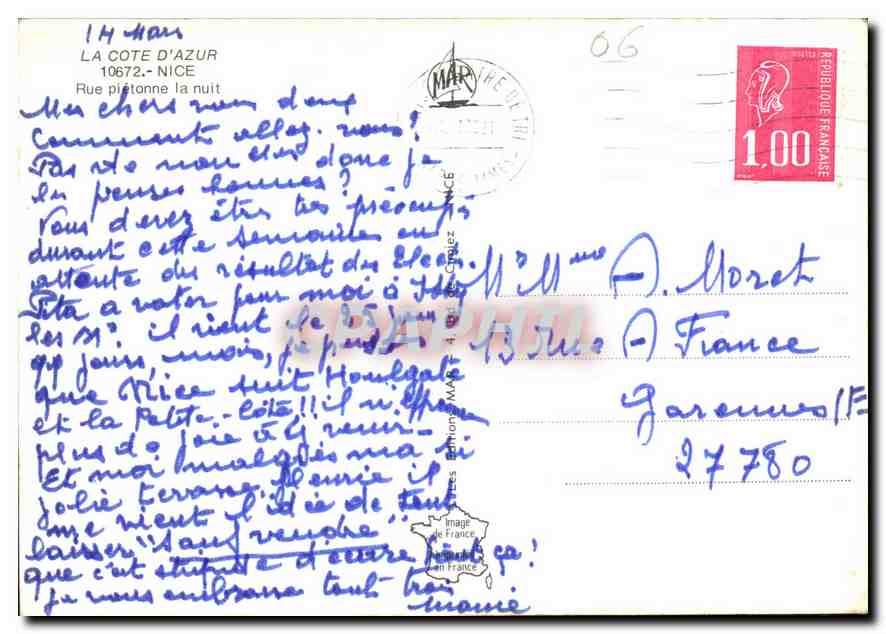 14 Mars
LA COTE D'AZUR
10672.- NICE
Rue piétonne la nuit
06
MAR
RÉPUBLIQUE FRANÇAISE
1,00
Mes chers vous deux
comment allez-vous?
Pas de nouvelles donc je
les penses bonnes?
Vous devez êtres très préocupés
durant cette semaine en
attente du résultat des Elec
a voter pour moi à
les il vient le 25 pour
qq jours, mais, je pense
que Nice suit Houlgate
et la Petite-Côte!! il n'
plus de joie à y venir-
Et moi malgrès ma si
jolie terrasse fleurie il
me vient l'idée de tout
laisser "sans vendre"
que c'est stupide d'écrire ça!
Je vous embrasse tout trois
Mamie
Mr Mme A. Moret
13 Rue A France
Garennes/E
27780
Les Editions MAR
NICE
Image
de France
en France
CPAPHIL